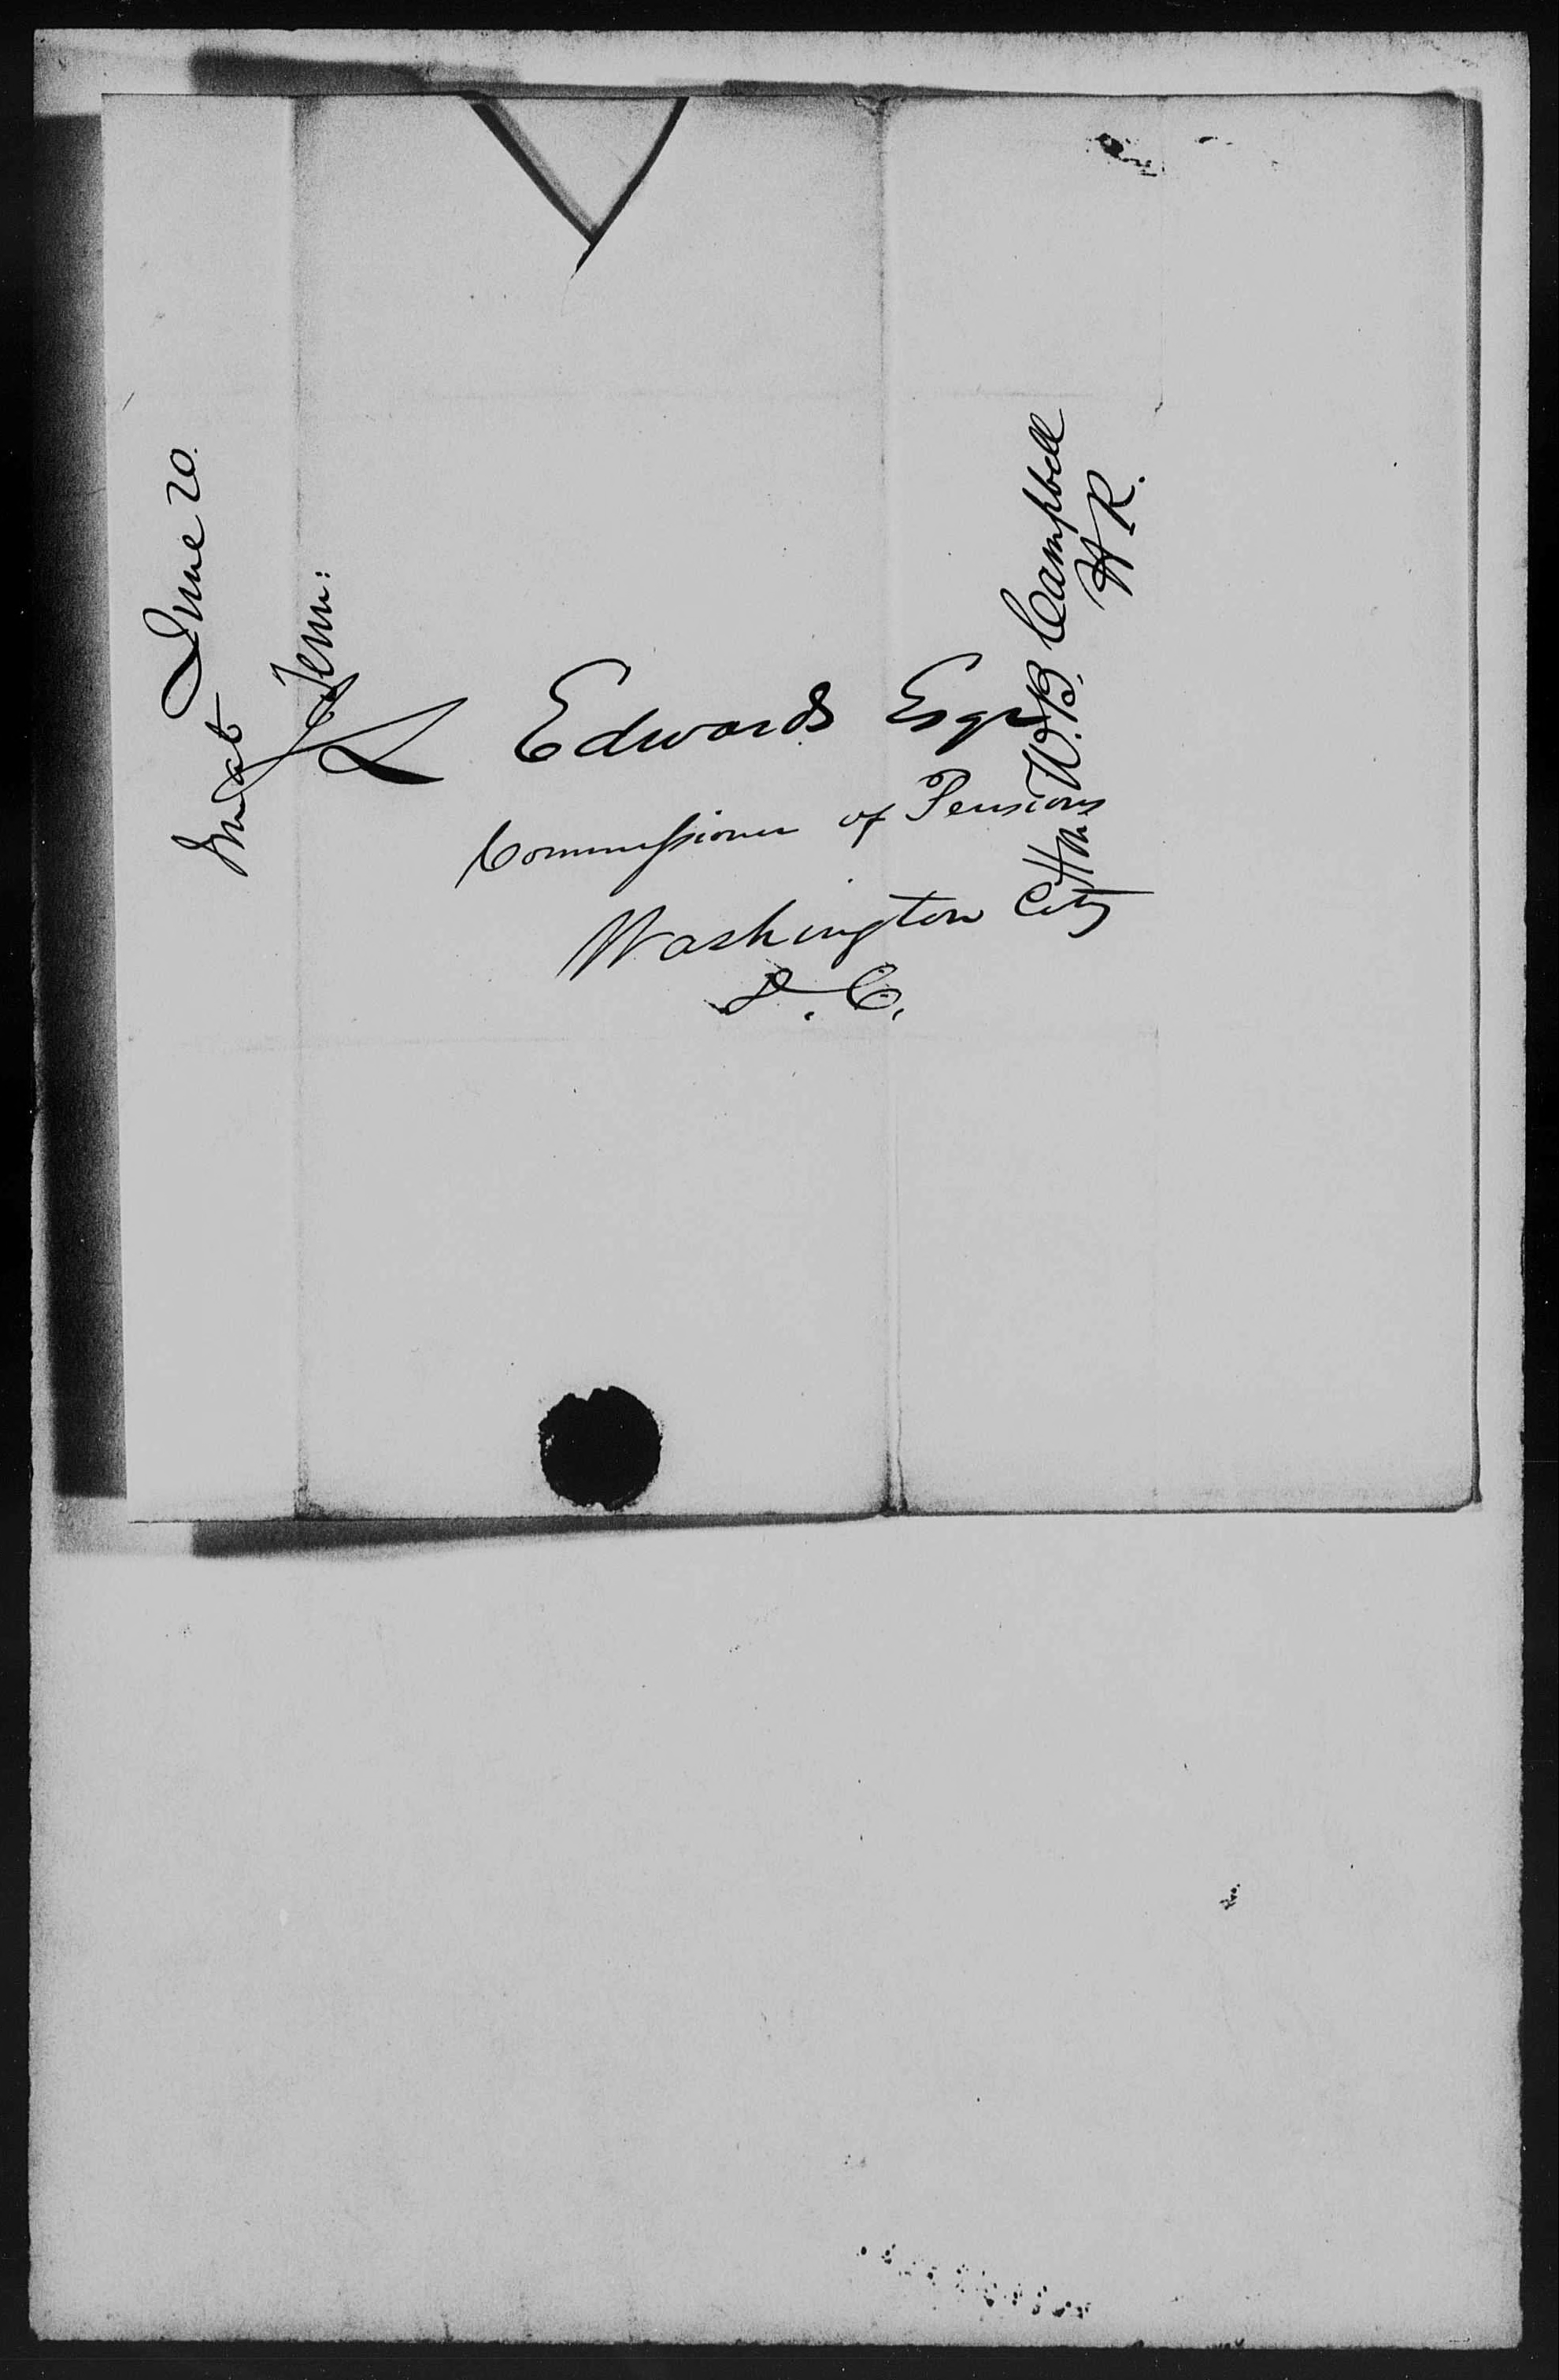 June 20.
Tenn:
J L Edwards Esqr
Commissioner of Pensions
Washington City
D. C.
Hon W. B. Campbell
H R.